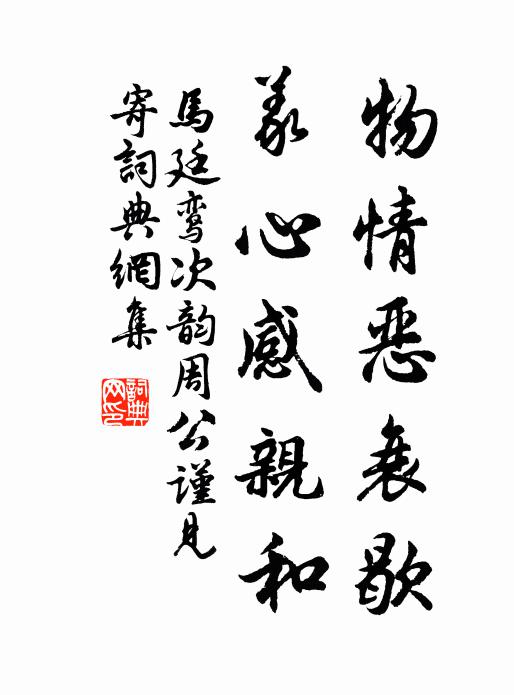 物情恶衰歇
义心感親和
馬廷鸾次韵周公謹見
寄詞典網集
詞典网印